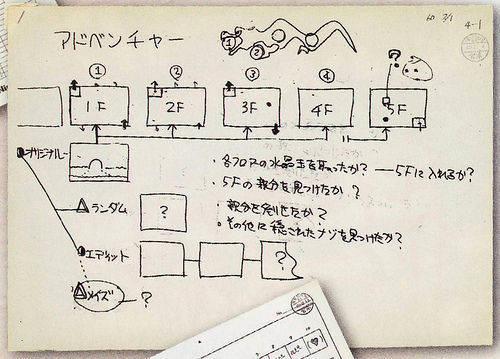 アドベンチャー
4-1
① ② ③ ④
1F 2F 3F 4F 5F
オリジナル
・各フロアの水晶玉を取ったか? ― 5Fに入れるか?
・5Fの親分を見つけたか?
・親分を倒せたか?
・その他に隠されたナゾを見つけたか?
ランダム
?
エディット
?
メイズ ?